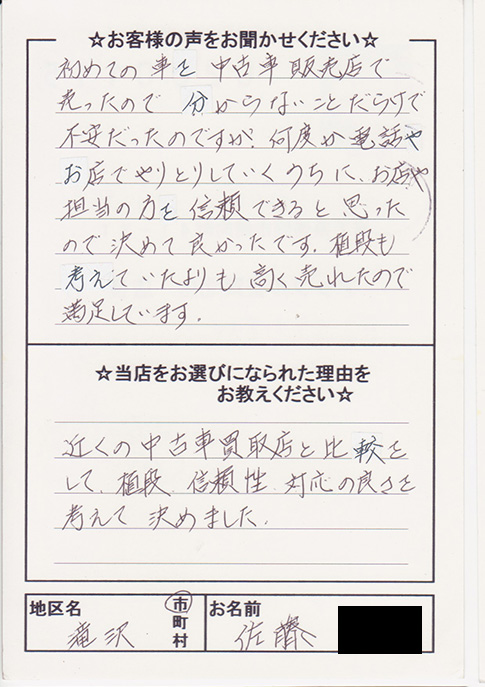 ☆お客様の声をお聞かせください☆
初めての車を中古車販売店で
売ったので分からないことだらけで
不安だったのですが、何度か電話や
お店でやりとりしていくうちに、お店や
担当の方を信頼できると思った
ので決めて良かったです。値段も
考えていたよりも高く売れたので
満足しています。
☆当店をお選びになられた理由を
お教えください☆
近くの中古車買取店と比較を
して、値段、信頼性、対応の良さを
考えて決めました。
地区名 滝沢 市町村
お名前 佐藤